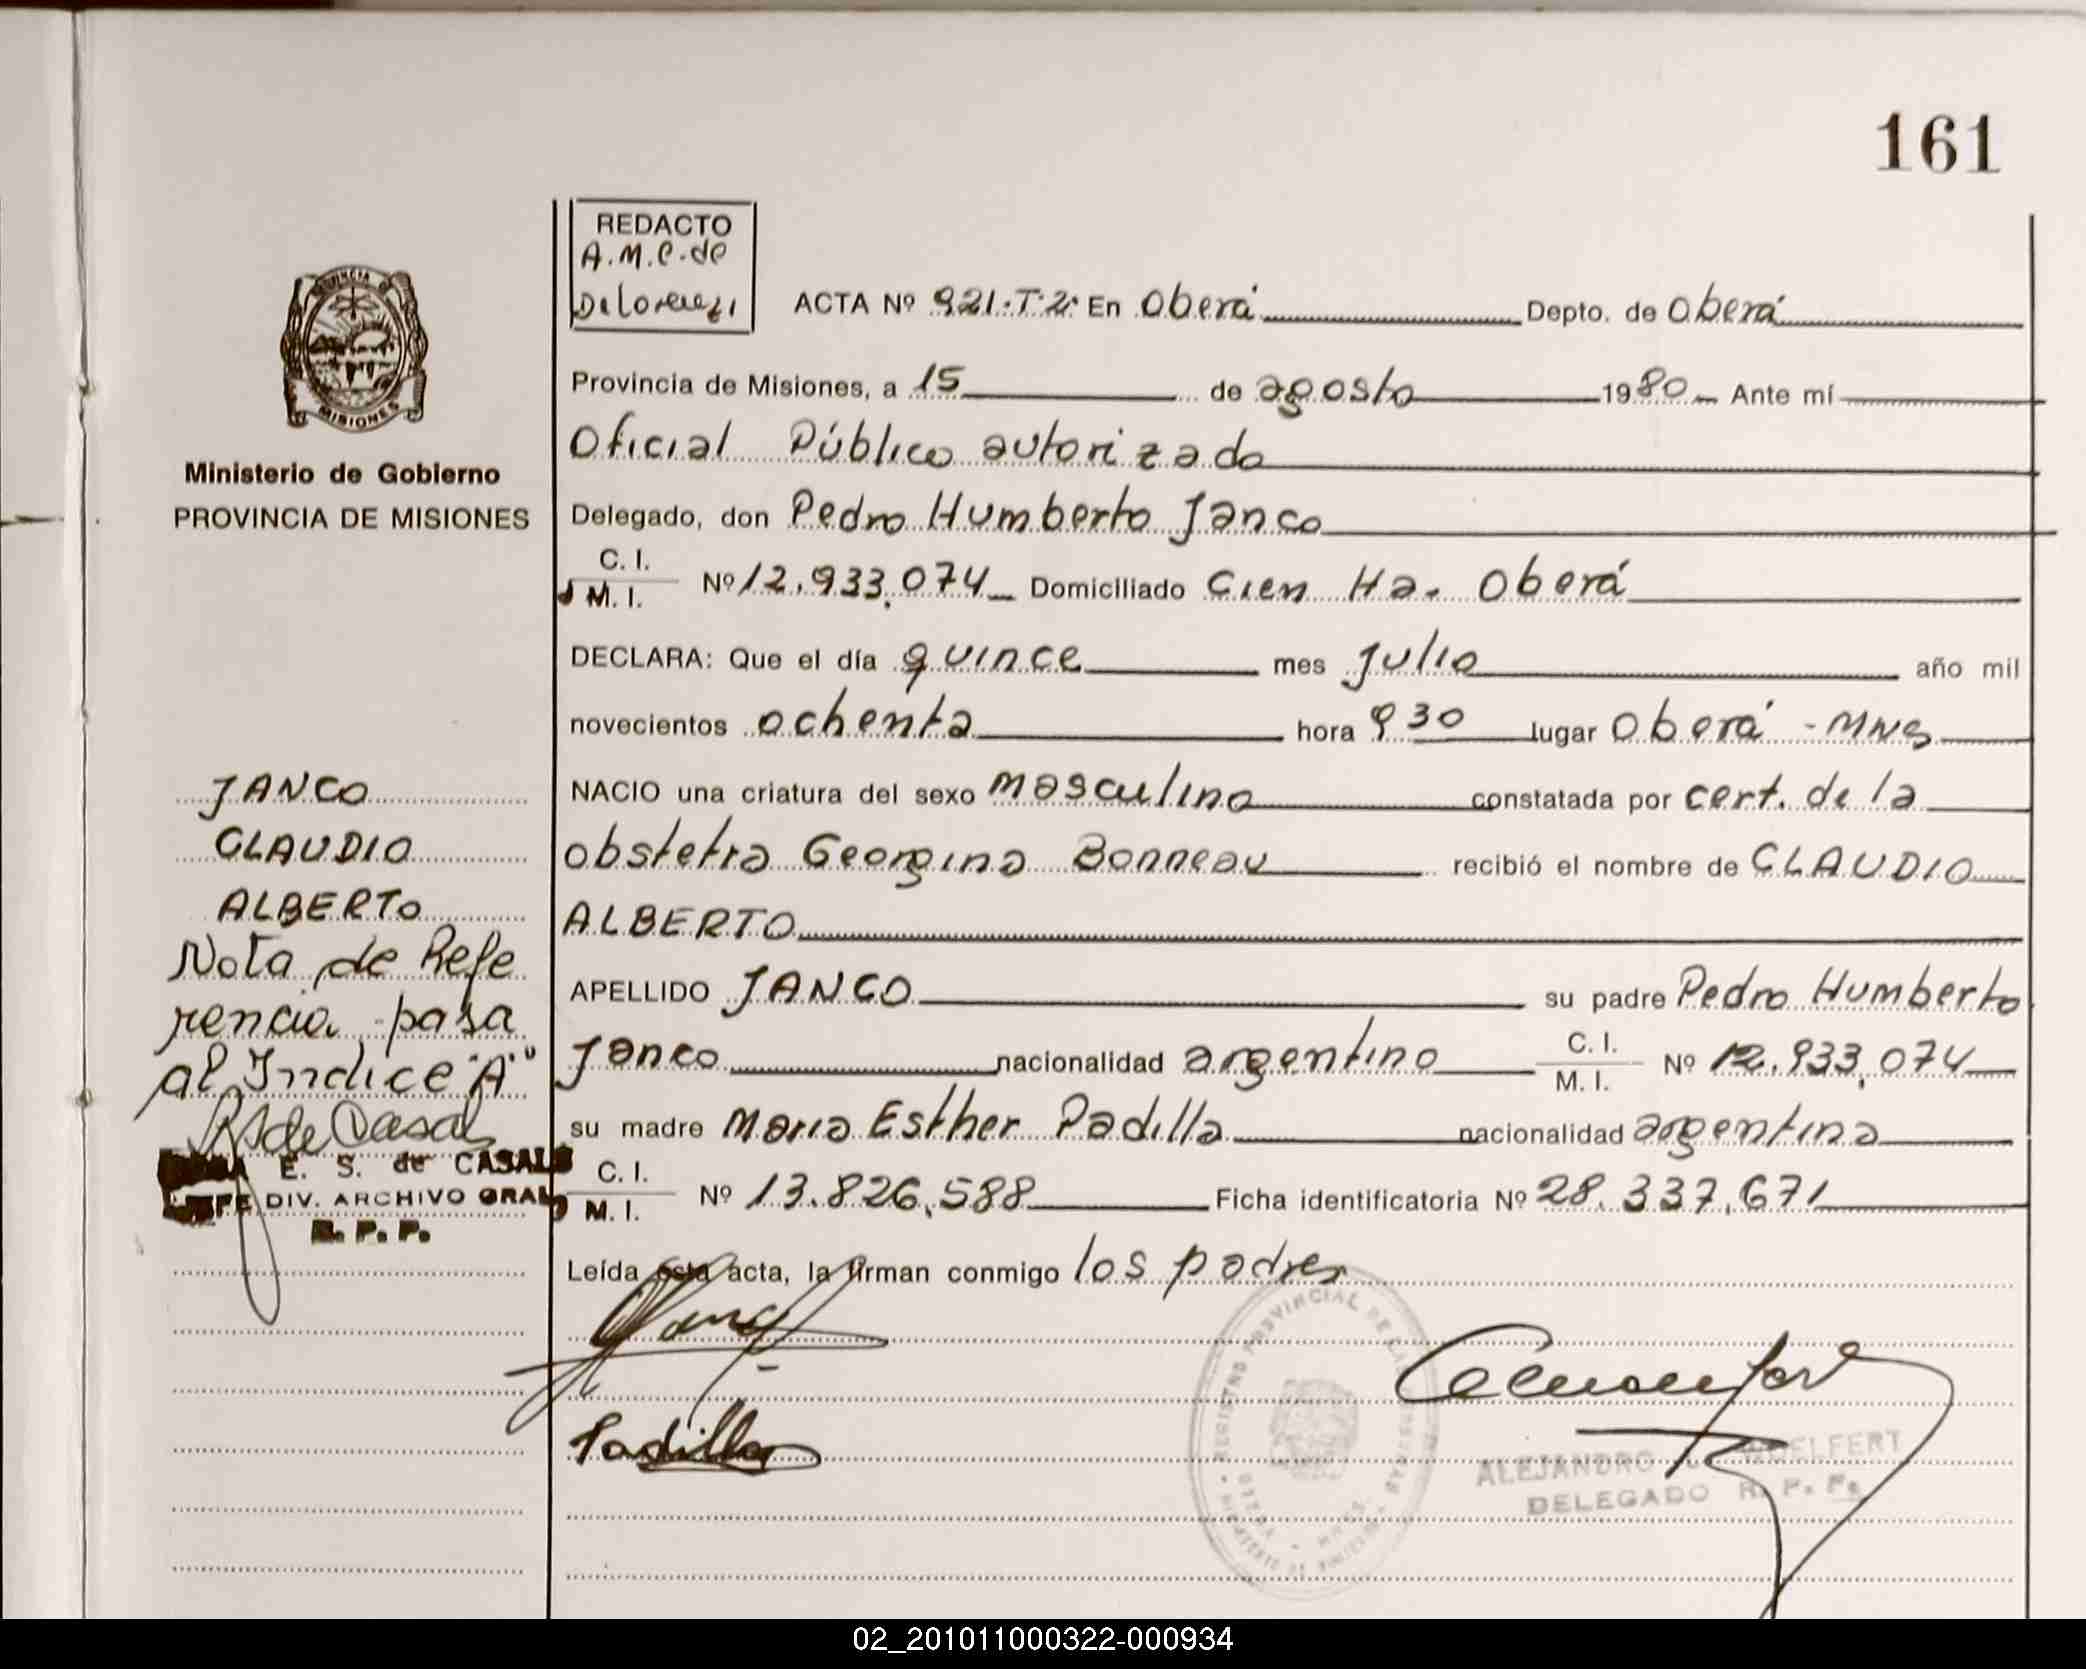 161
REDACTO
A.M.C. de
De Lorenzi
ACTA Nº 921.T.2. En Oberá Depto. de Oberá
Provincia de Misiones, a 15 de agosto 1980 Ante mí
Oficial Público autorizado
Delegado, don Pedro Humberto Janco
C. I.
M. I. Nº 12.933.074 Domiciliado Cien Ha. Oberá
DECLARA: Que el día quince mes Julio año mil
novecientos ochenta hora 9 30 lugar Oberá - MNS
NACIO una criatura del sexo masculino constatada por cert. de la
obstetra Georgina Bonneau recibió el nombre de CLAUDIO
ALBERTO
APELLIDO JANCO su padre Pedro Humberto
Janco nacionalidad argentino C. I.
M. I. Nº 12.933.074
su madre Maria Esther Padilla nacionalidad argentina
C. I.
M. I. Nº 13.826.588 Ficha identificatoria Nº 28.337.671
Leída esta acta, la firman conmigo los padres
Padilla
ALEJANDRO
DELEGADO R. P. P.
PROVINCIA D
MISIONES
Ministerio de Gobierno
PROVINCIA DE MISIONES
JANCO
CLAUDIO
ALBERTO
Nota de Refe
rencia pasa
al Indice "A"
de Casal
E. S. de CASAL
JEFE DIV. ARCHIVO GRAL
R. P. P.
02_201011000322-000934